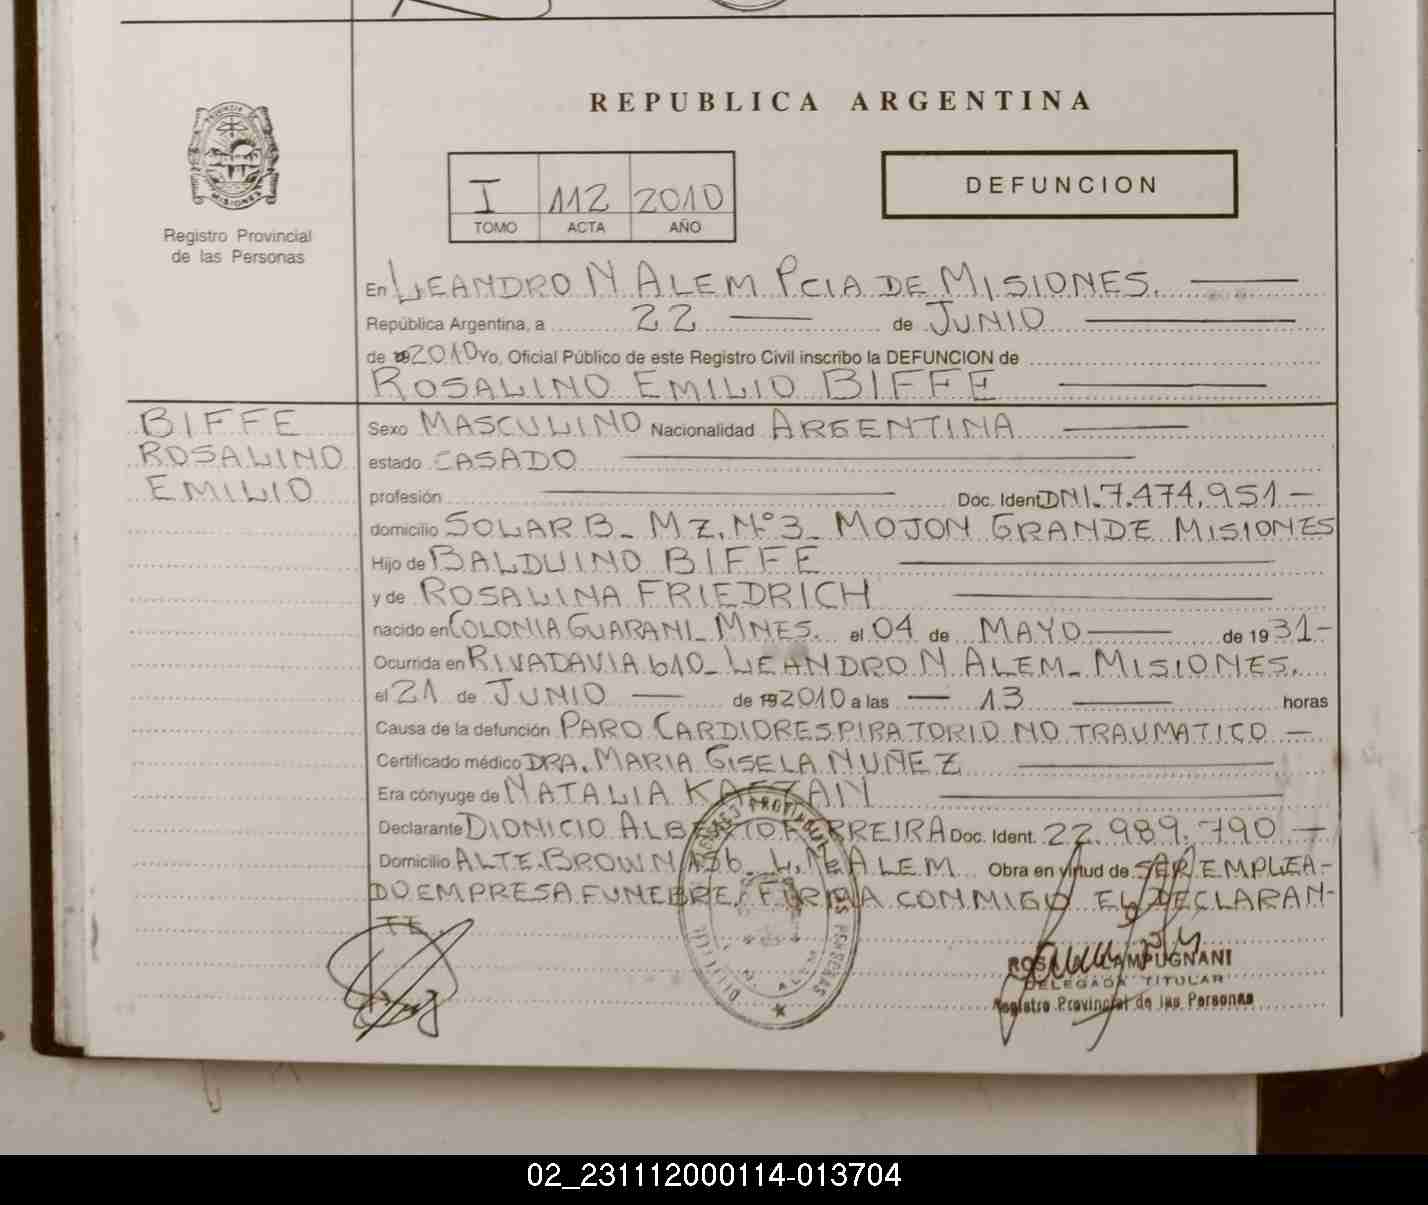 REPUBLICA ARGENTINA
I 112 2010
TOMO ACTA AÑO
DEFUNCION
Registro Provincial
de las Personas
En LEANDRO N ALEM PCIA DE MISIONES.
República Argentina, a 22 de JUNIO
de 2010 Yo, Oficial Público de este Registro Civil inscribo la DEFUNCION de
ROSALINO EMILIO BIFFE
BIFFE
ROSALINO
EMILIO
Sexo MASCULINO Nacionalidad ARGENTINA
estado CASADO
profesión Doc. Ident. DNI. 7.474.951-
domicilio SOLAR B- MZ. Nº3- MOJON GRANDE MISIONES
Hijo de BALDUINO BIFFE
y de ROSALINA FRIEDRICH
nacido en COLONIA GUARANI- MNES. el 04 de MAYO de 1931-
Ocurrida en RIVADAVIA 610- LEANDRO N ALEM- MISIONES.
el 21 de JUNIO de 2010 a las 13 horas
Causa de la defunción PARO CARDIORESPIRATORIO NO TRAUMATICO
Certificado médico DRA. MARIA GISELA NUÑEZ
Era cónyuge de NATALIA
Declarante DIONICIO ALBERTO FERREIRA Doc. Ident. 22.989.790
Domicilio ALTE. BROWN L. N. ALEM Obra en virtud de SER EMPLEA-
DO EMPRESA FUNEBRE, FIRMA CONMIGO EL DECLARAN-
TE.
LAMPUGNANI
DELEGADA TITULAR
Registro Provincial de las Personas
02_231112000114-013704